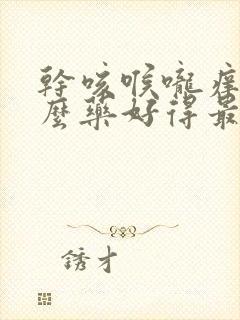 幹咳喉嚨痒
麼藥好得最
銹才